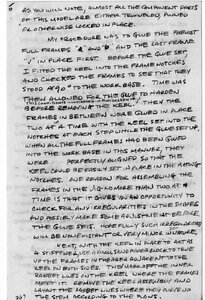 5
AS YOU WILL NOTE, ALMOST ALL THE COMPONENT PARTS
OF THIS MODEL ARE EITHER TRUNNELED, PINNED
OR OTHERWISE LOCKED IN PLACE.
MY PROCEDURE WAS TO GLUE THE FIRST
FULL FRAMES AND THE LAST FRAME
IN PLACE FIRST. BEFORE THE GLUE SET
I FITTED THE KEEL INTO THE FRAME NOTCHES
AND CHECKED THE FRAMES TO SEE THAT THEY
STOOD AT 90° TO THE WORK BASE. TIME WAS
THEN ALLOWED FOR THE GLUE TO HARDEN
BEFORE REMOVING THE KEEL. THEN THE
FRAMES IN BETWEEN WERE GLUED IN PLACE
TWO AT A TIME WITH THE KEEL SET INTO THE
NOTCHES AT EACH STEP WHILE THE GLUE SET UP.
WHEN ALL THE FULL FRAMES HAD BEEN GLUED
INTO THE WORK BASE IN THIS MANNER, THEY
WERE PERFECTLY ALIGNED SO THAT THE
KEEL COULD BE EASILY SET IN PLACE IN THE
NOTCHES. OUR REASON FOR ASSEMBLING THE
FRAMES IN THE JIG NO MORE THAN TWO AT A
TIME IS THAT IT GIVES YOU AN OPPORTUNITY TO
CHECK FOR ANY IRREGULARITIES IN THE SHAPES
AND POSSIBLY MAKE SOME ADJUSTMENT BEFORE
THE GLUE SETS. HOPEFULLY SUCH IRREGULARITIES
WILL BE NONEXISTENT OR VERY MINOR IN NATURE.
NEXT, WITH THE KEEL IN PLACE TO ACT AS
A STIFFENER, USE A SANDING BOARD
OF THE FRAMES IN THE AREA ADJACENT TO THE
KEEL ON BOTH SIDES. THEN MARK OFF THE
RABBET LINES ON THE KEEL WHERE THE FRAMES
MEET IT. REMOVE THE KEEL ASSEMBLY AND
THE RABBET LINES WHERE THEY RUN UP
THE STEM ACCORDING TO THE PLANS.